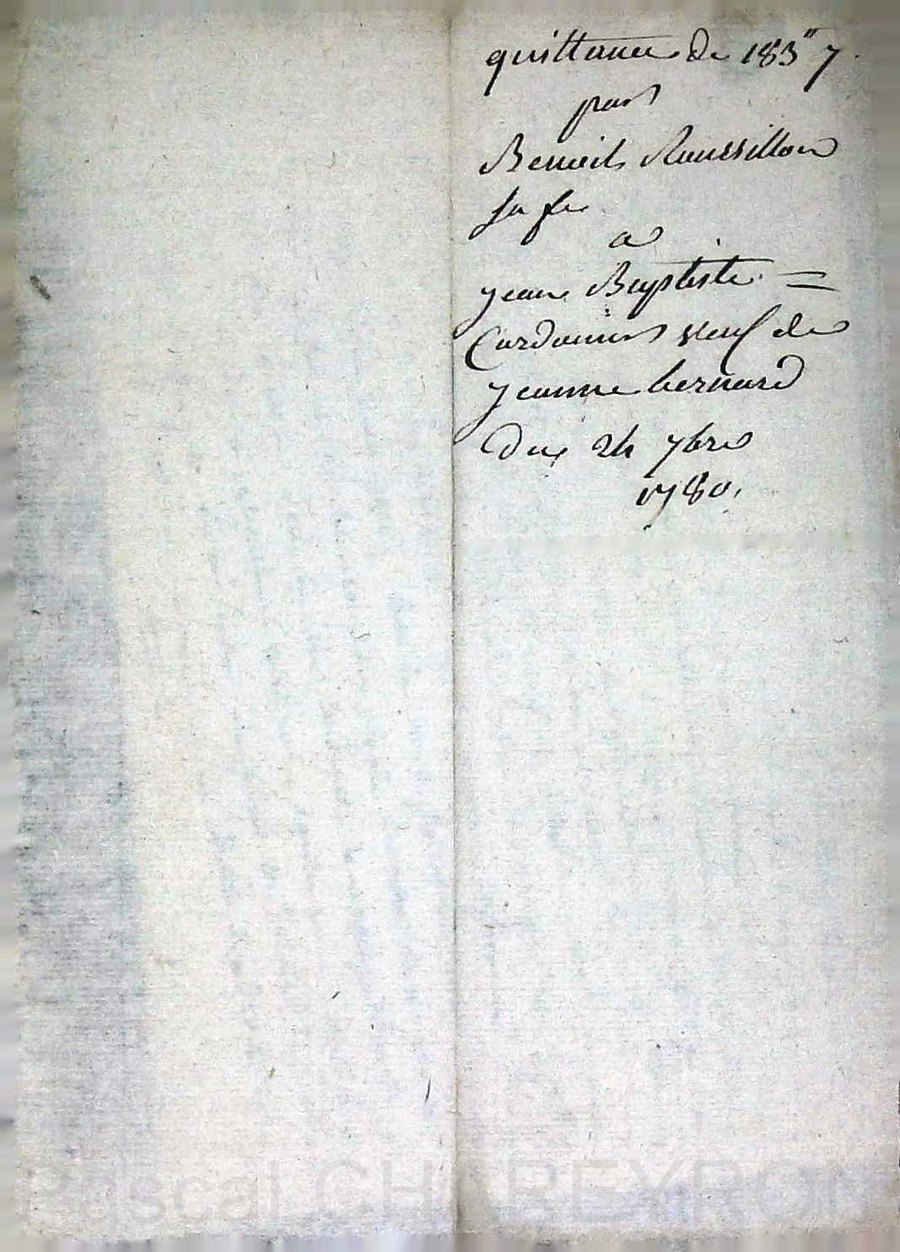 quittance de 183" 7
par
Benoit Roussillon
sa fe
a
jean Baptiste =
veuf de
jeanne bernard
du 24 7bre
1780.
Pascal CHAREYRON